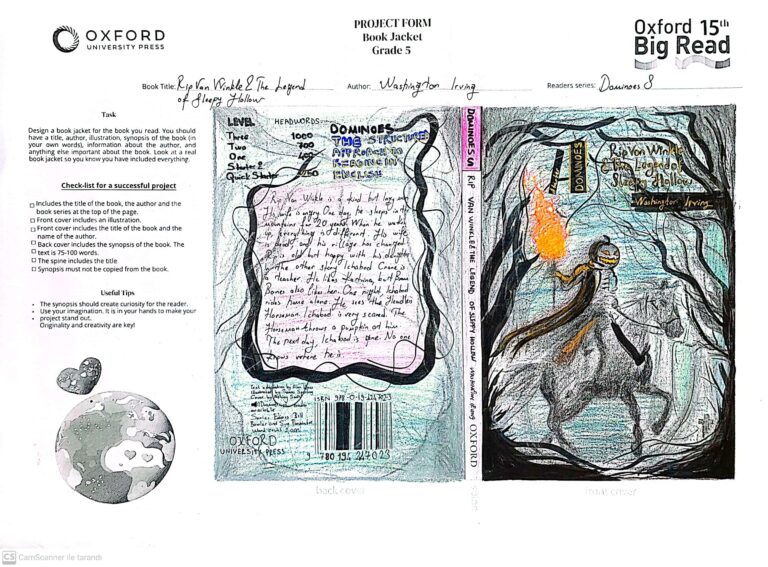 OXFORD
UNIVERSITY PRESS
PROJECT FORM
Book Jacket
Grade 5
Oxford 15th
Big Read
Book Title: Rip Van Winkle & The Legend
of Sleepy Hollow
Author: Washington Irving
Readers series: Dominoes S
Task
Design a book jacket for the book you read. You should
have a title, author, illustration, synopsis of the book (in
your own words), information about the author, and
anything else important about the book. Look at a real
book jacket so you know you have included everything.
Check-list for a successful project
Includes the title of the book, the author and the
book series at the top of the page.
Front cover includes an illustration.
Front cover includes the title of the book and the
name of the author.
Back cover includes the synopsis of the book. The
text is 75-100 words.
The spine includes the title
Synopsis must not be copied from the book.
Useful Tips
The synopsis should create curiosity for the reader.
Use your imagination. It is in your hands to make your
project stand out.
Originality and creativity are key!
LEVEL HEADWORDS
Three 1000
Two 700
One 400
Starter 2
Quick Starter 250
DOMINOES
THE STRUCTURED
APPROACH TO
READING IN
ENGLISH
Rip Van Winkle is a kind but lazy man
His wife is angry. One day, he sleeps in the
mountains for 20 years. When he wakes
up, everything is different. His wife
is dead, and his village has changed
Rip is old but happy with his daughter
In the other story Ichabod Crane is
a teacher. He likes Katrina, but Brom
Bones also likes her. One night Ichabod
rides home alone. He sees the Headless
Horseman. Ichabod is very scared. The
Horseman throws a pumpkin at him
The next day, Ichabod is gone. No one
knows where he is
Text adaptation by
Illustrated by
Cover by
available
Series Editors: Bill
Bowler and Sue Parminter
Word count
OXFORD
UNIVERSITY PRESS
ISBN 978-0-19-424702-3
9 780194 247023
back cover
DOMINOES S RIP VAN WINKLE & THE LEGEND OF SLEEPY HOLLOW Washington Irving OXFORD
spine
DOMINOES
Rip Van Winkle
& The Legend of
Sleepy Hollow
Washington Irving
front cover
CS CamScanner ile tarandı